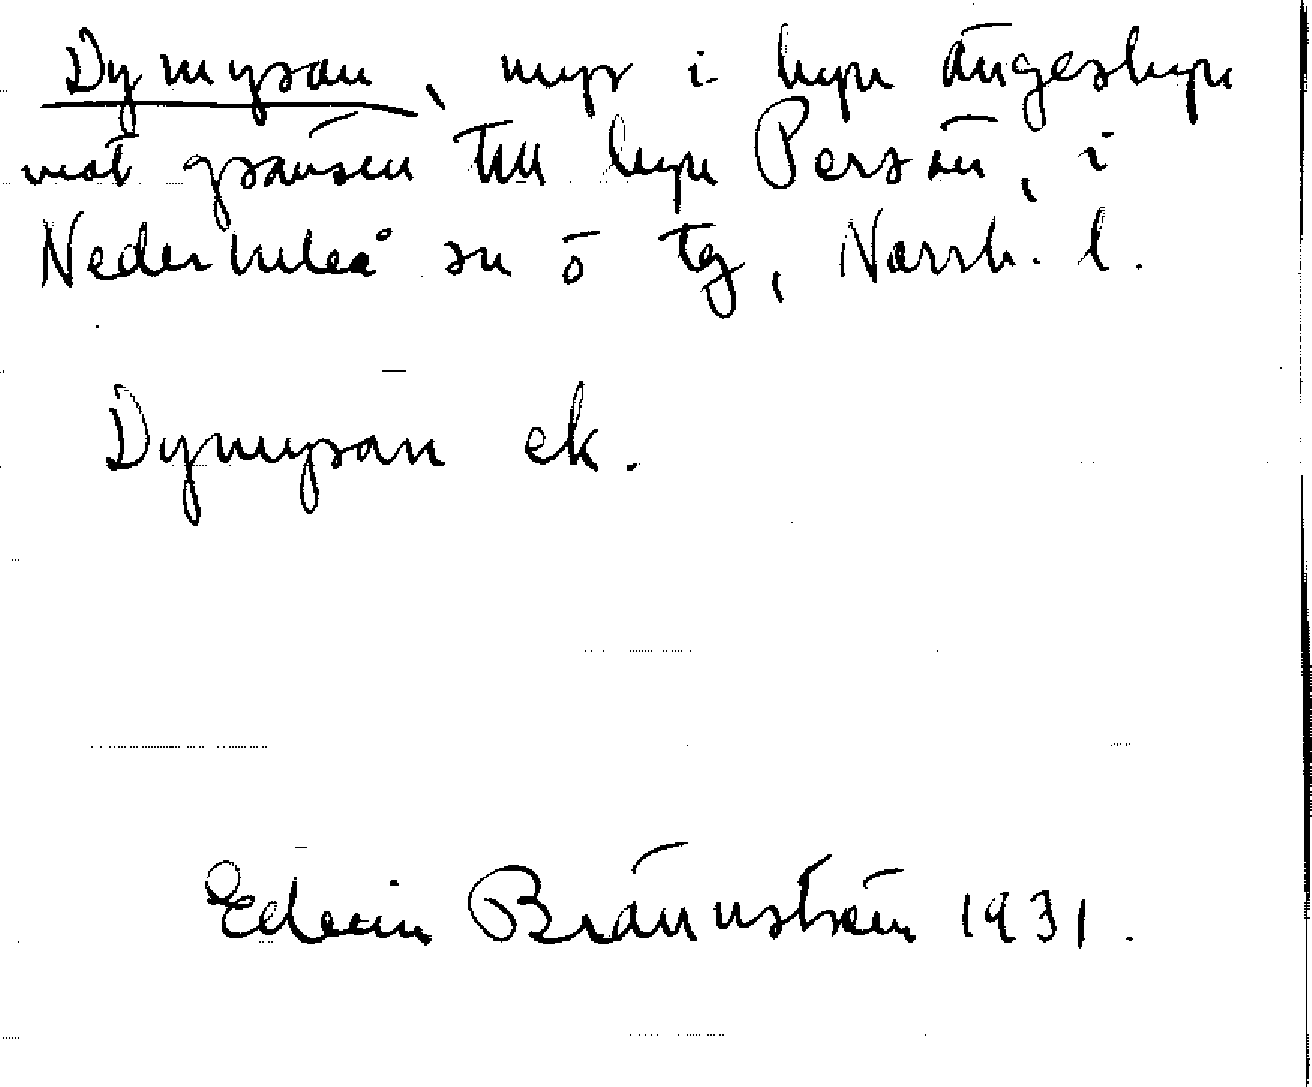 Dymyran, myr i byn Ängesbyn
mot gränsen till byn Persön, i
Nederluleå sn o tg, Norrb. l.
Dymyran ek.
Edvin Brännström 1931.